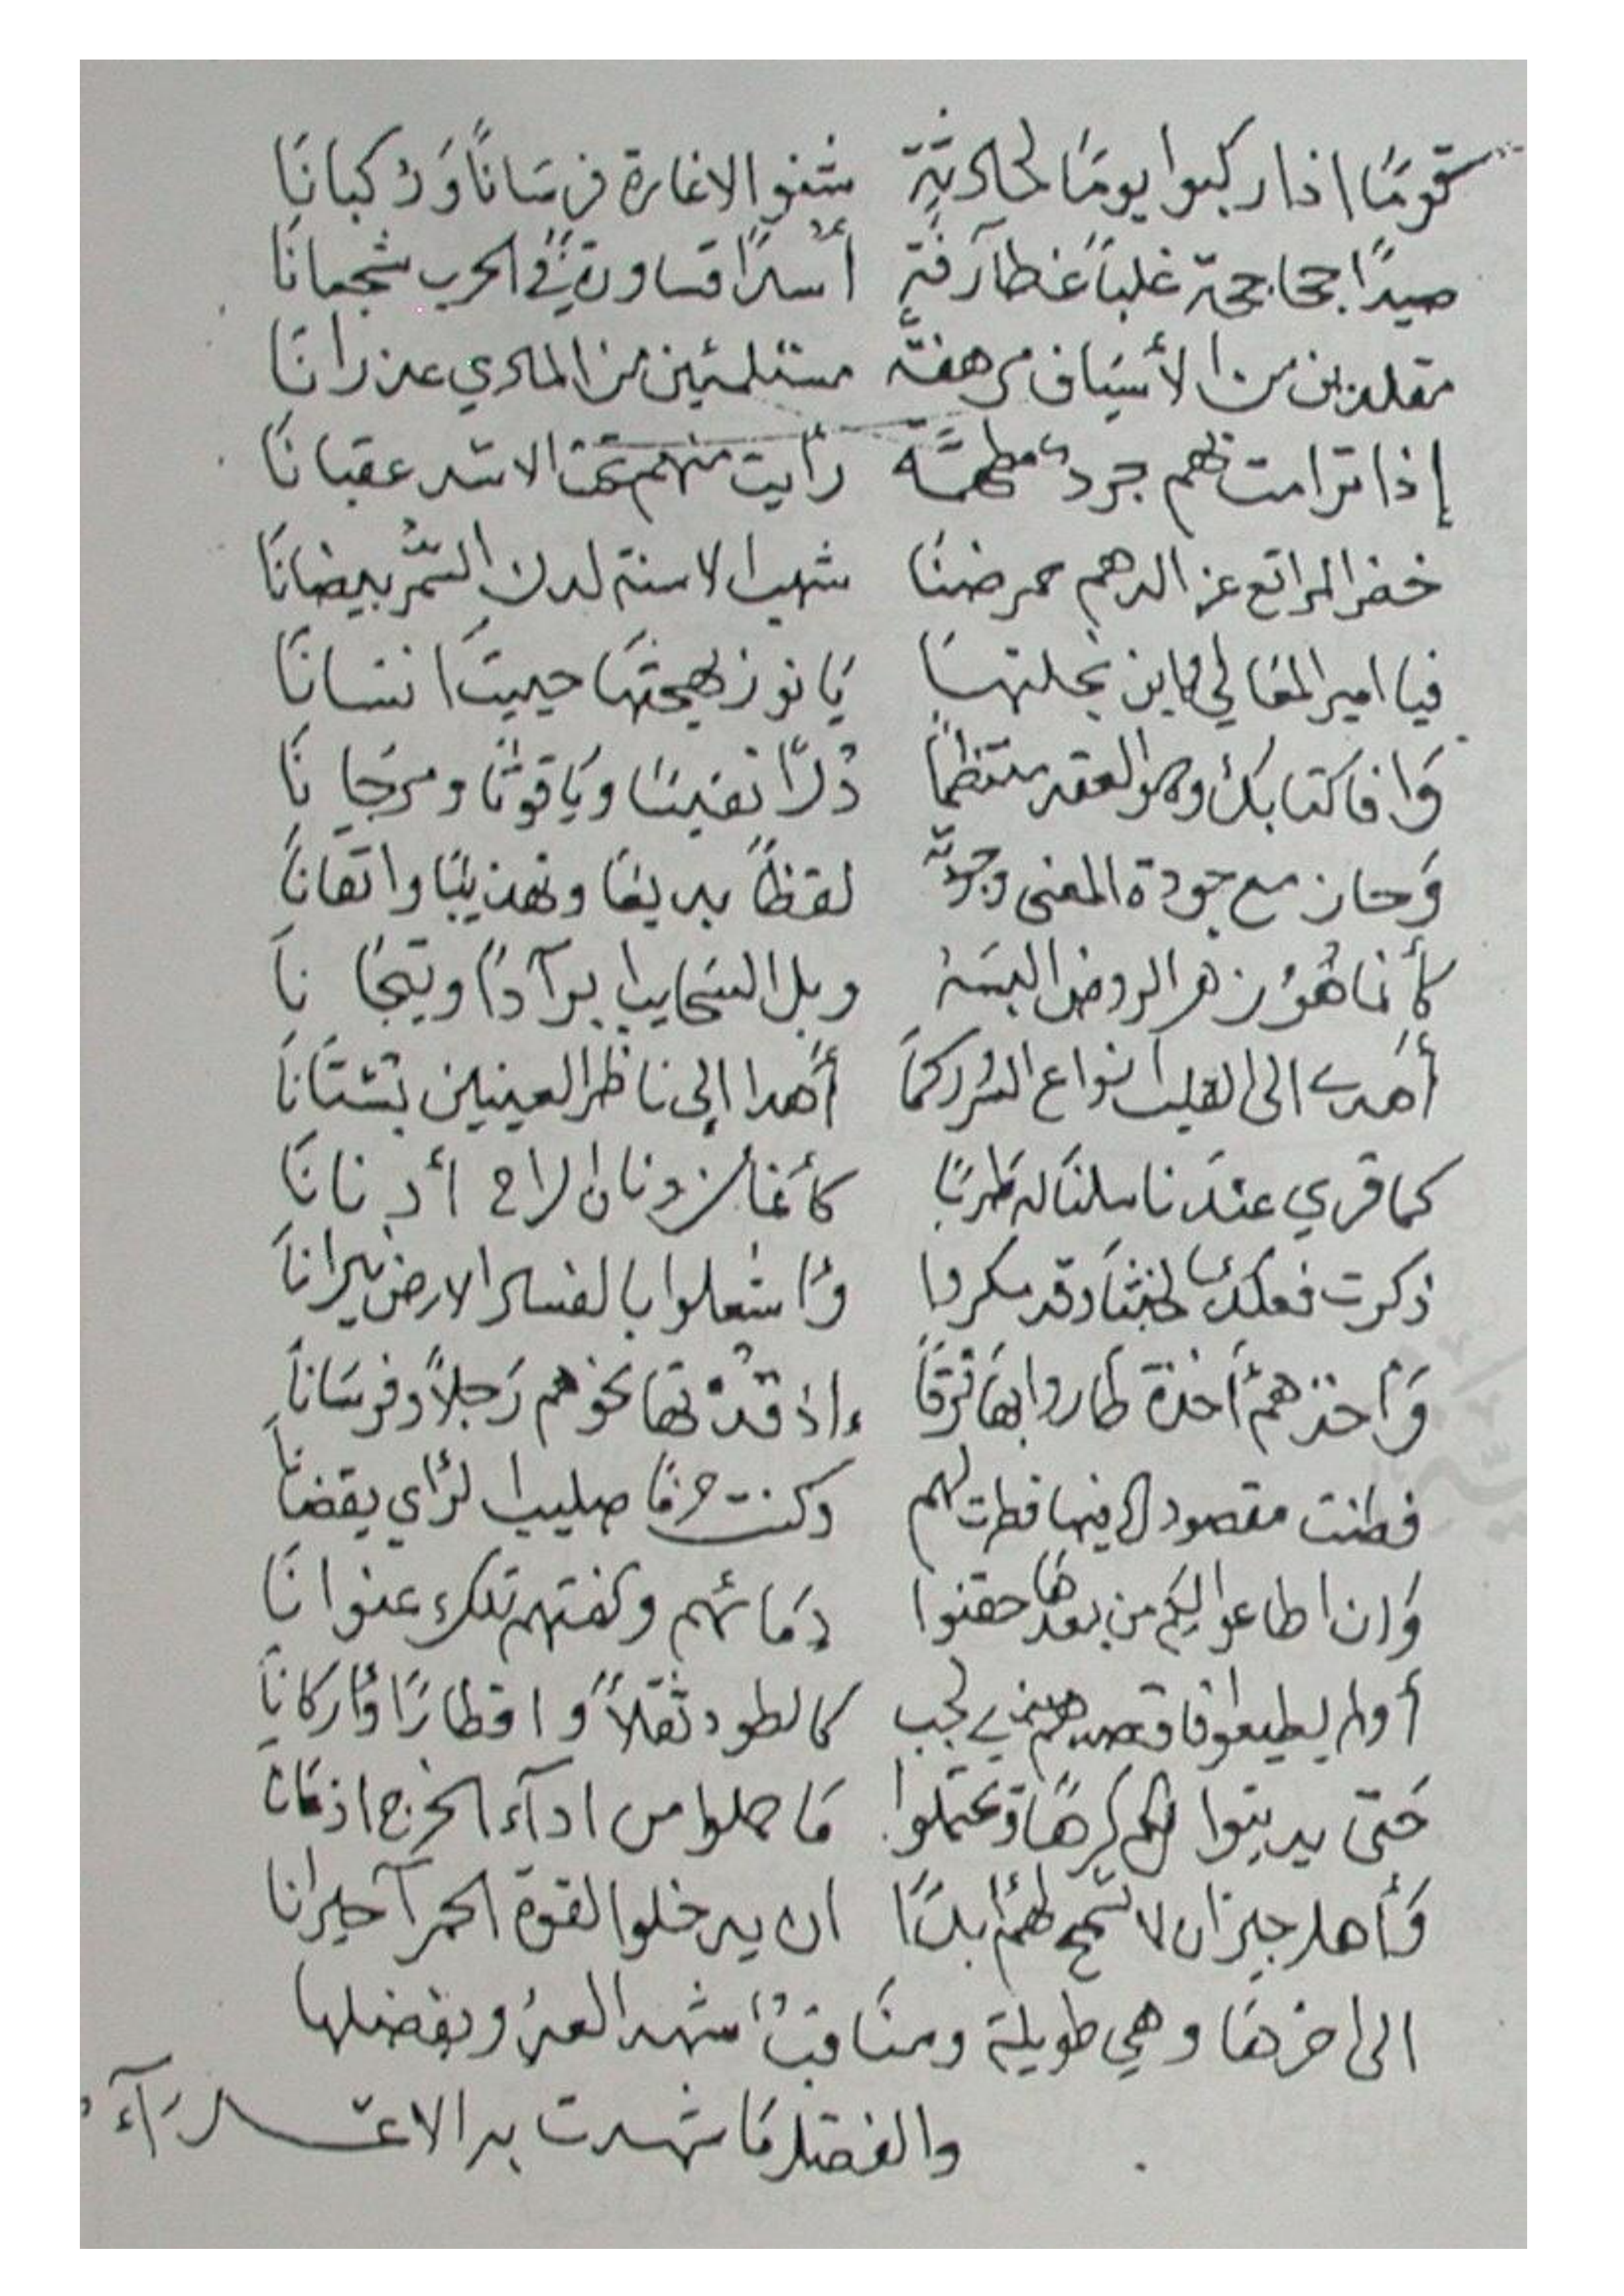 قومًا اذا ركبوا يومًا لحادثة شنوا الاغارة فرسانًا وَركبانَا
صيدًا جحاجحة غلبًا غطآرفةٍ أُسدًا قساورةً في الحرب شجعانَا
مقلدين من الأسيَاف مرهفة مستلمئين من المادي عدرانَا
إذا ترامت بهم جردٌ مطهمَّة رأيت منهم تحت الاسد عقبانَا
خضر المرابع عز الدهم شهب الاسنة لدن السُّمر بيضانَا
فيا امير المعَالي يابن بجدتهَا يَا نور بهجتهَا حييتَ انسَانَا
وَافا كتابك وهو العقد منتظمًا دُرًّا نفيسًا ويَاقوتًا ومرجَانَا
وَحاز مع جودة المعنى وجزله لفظًا بديعًا وتهذيبًا واتقانَا
كأنما هُوَ زهر الروض البسَهُ وبل السحَايب ابرآدًا وتيجَانَا
أهدى الى القلب انواع السرور كمَا أهدا الى ناظر العينين بستَانَا
كما قري عندَنا ملنَا له طربًا كأنمَا دنان الراح أدنانَا
ذكرت فعلك لخبثًا وقد مكروا وَاشعلوا بالفساد الارض نيرانَا
وَأخذهمُ أخذة طاروا بهَا فرقًا إذ قدْتها نحوهم رَجلًا وفرسَانَا
فطنت مقصود فيها فطرت لهم وكنت حزمًا صليب الرَّاي يقضانَا
وَان اطاعوا لكم من بعدهَا حقنوا دمَائهم وكفتهم تلك عنوانَا
أو لم يطيعوا فاقصدهم بذي لجب كالطود ثقلًا وَاقطارًا وَأركانَا
حَتى يدينوا لكم كرهًا وَيحتملوا مَا حملوا من ادآء الخرج اذعَانَا
وَأهل جيزان لا تسمح لهُم أبدًا ان يدخلوا القوة الحمرآ جيرانا
الى اخرهَا وهي طويلة ومنَاقبُ شهد العدُو بفضلها
والفضل مَا شهدت به الاعـــداَآء